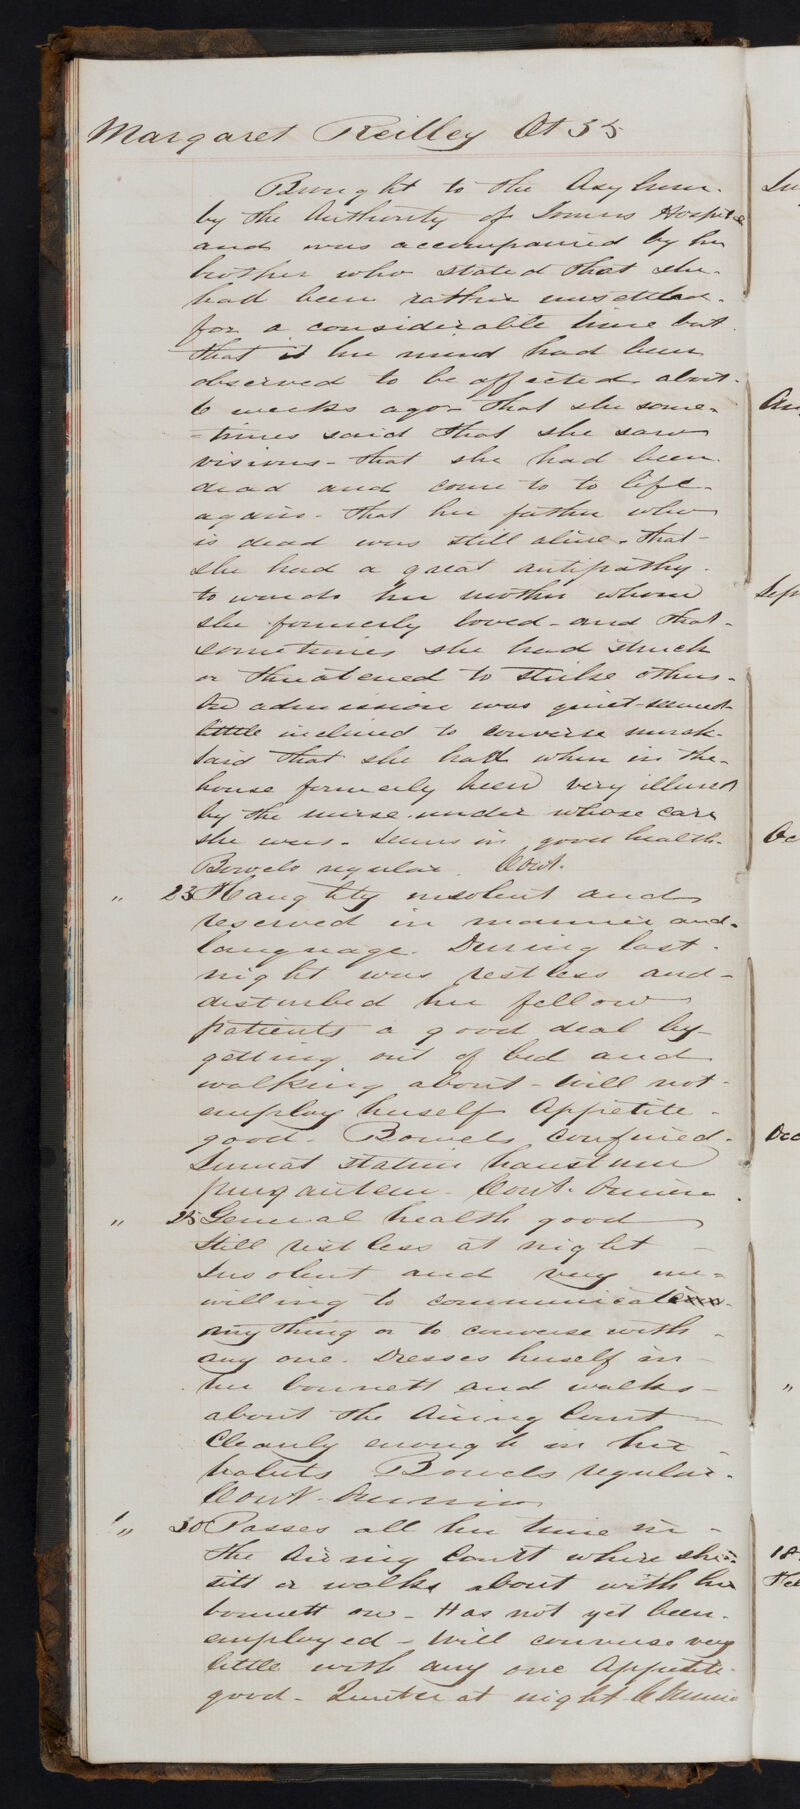 Margaret Reilley Æt 35
Brought to the Asylum
by the Authority of Hospital
and was accompanied by her
brother who stated that she
had been rather unsettled
for a considerable time but
that it her mind had been
observed to be affected about
6 weeks ago - that she some-
-times said that she saw
visions - that she had been
dead and come to to life
again - that her father who
is dead was still alive. that
she had a great antipathy
towards her mother whom
she formerly loved - and that
sometimes she had struck
or threatened to strike others -
On admission was quiet - seemed
little inclined to converse much
Said that she had when in the
house formerly been very illused
by the nurse under whose care
she was. Seems in good health.
Bowels regular. Cont.
" 23 Haughty insolent and
reserved in manner and
language. During last
night was restless and
disturbed her fellow
patients a good deal by
getting out of bed and
walking about - Will not
employ herself Appetite
good - Bowels confined.
Sumat statim haustum
purgantem. Cont. Omnia
" 25 General health good
Still restless at night
Insolent and very un-
willing to communicate
anything or to converse with
any one. Dresses herself in
her bonnett and walks
about the Airing Court
Cleanly enough in her
habits Bowels regular.
Cont. Omnia
" 30 Passes all her time in
the Airing Court where she
sitt or walks about with her
bonnett on - Has not yet been
employed - Will converse very
little with any one Appetite
good - Quieter at night C Omnia
Oc
Dec
"
18